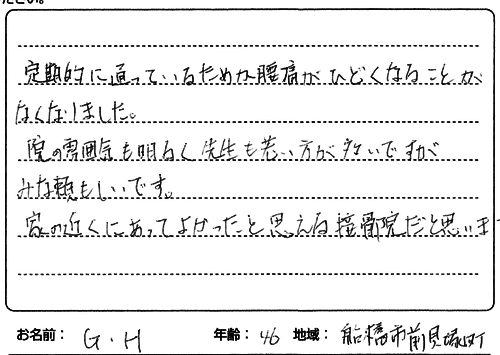 ださい。
定期的に通っているためか腰痛がひどくなることが
なくなりました。
院の雰囲気も明るく先生も若い方が多いですが
みな頼もしいです。
家の近くにあってよかったと思える接骨院だと思いま
お名前： G・H 年齢： 46 地域： 船橋市前貝塚町